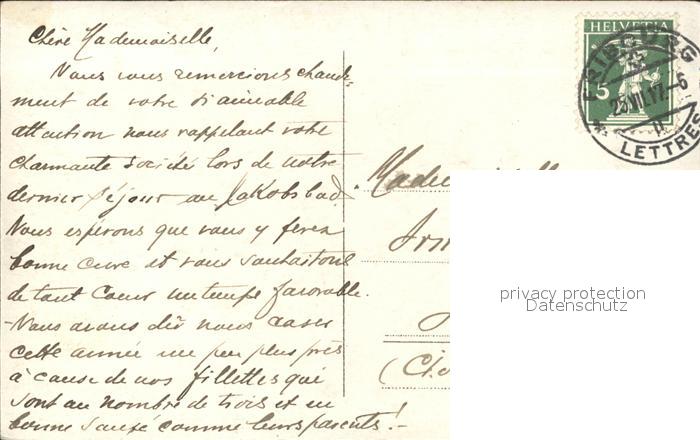 Chère Mademoiselle,
Nous vous remercions chaude-
ment de votre si aimable
attention nous rappelant votre
charmante société lors de notre
dernier séjour au Jakobsbad.
Nous espérons que vous y ferez
bonne cure et vous souhaitons
de tout coeur un temps favorable.
-Nous avons dû nous caser
cette année un peu plus près
à cause de nos fillettes qui
sont au nombre de trois et en
bonne santé comme leurs parents! -
HELVETIA
5
FRIBOURG
25.VII.17.-6
LETTRES
privacy protection
Datenschutz